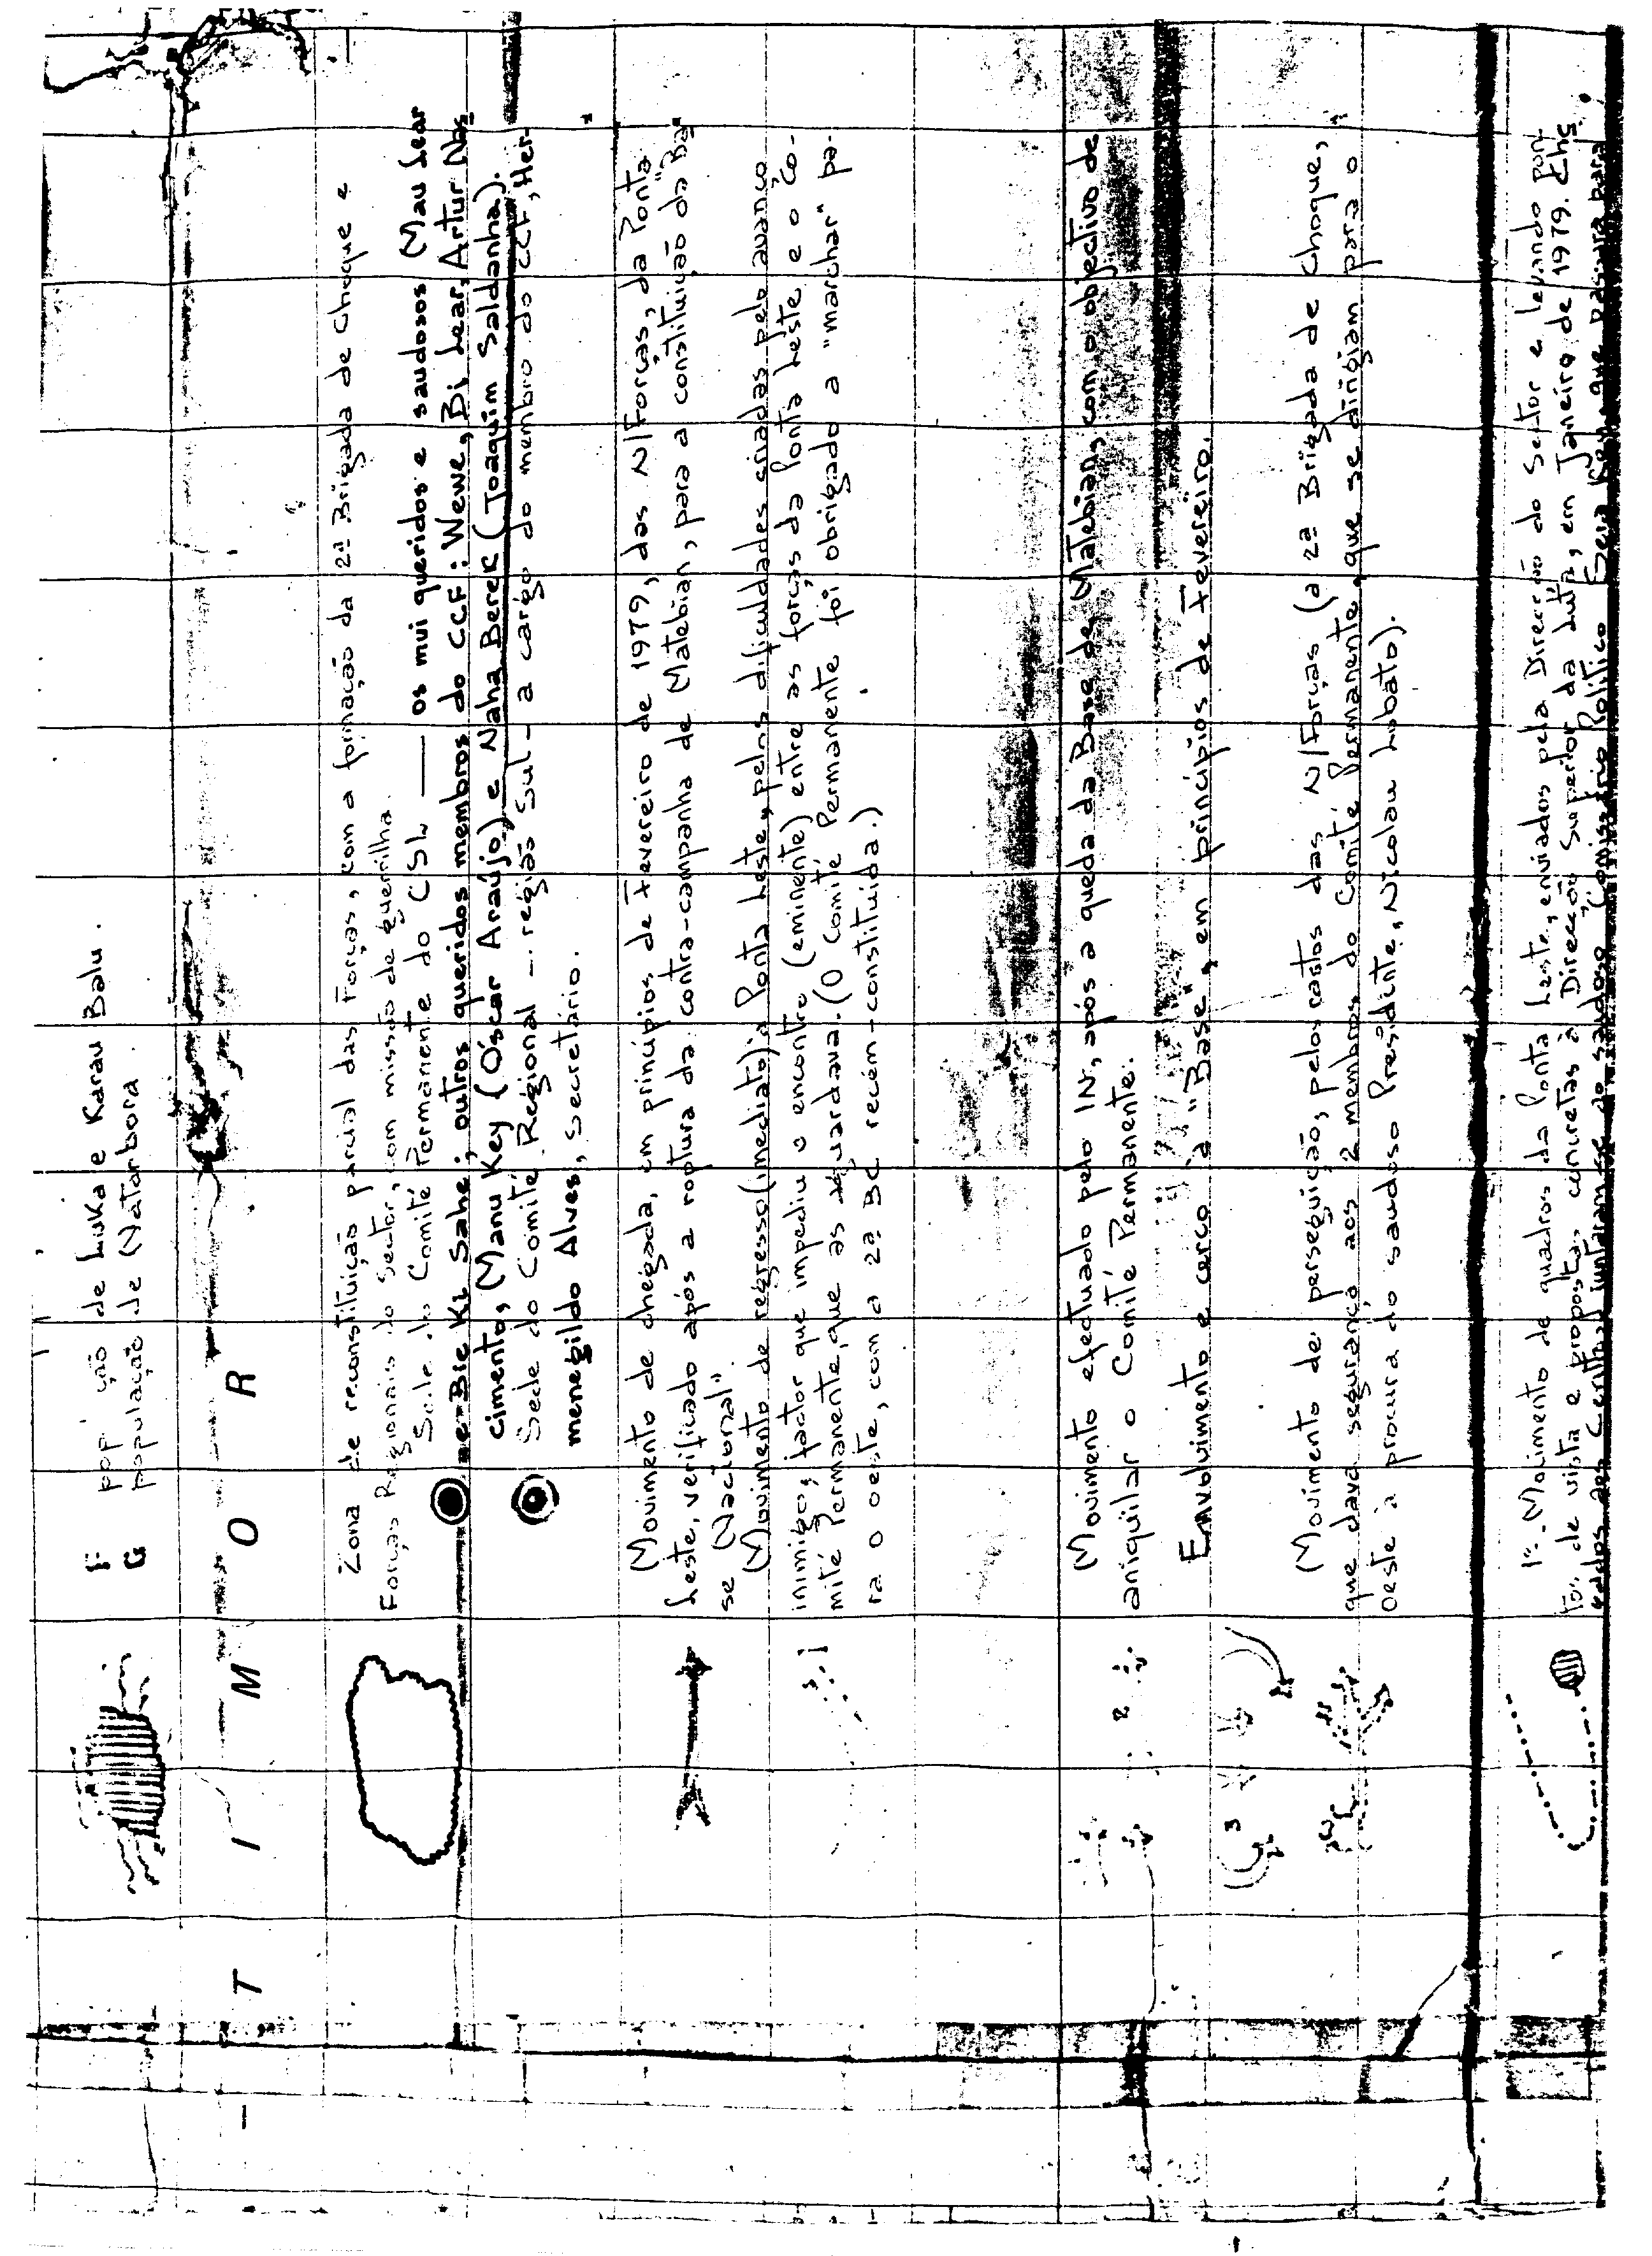 F população de Luka e Karau Balu.
G população de Natarbora.
T I M O R
Zona de reconstituição parcial das Forças, com a formação da 2ª Brigada de Choque e
Forças Regionais do Sector, com missão de guerrilha.
Sede do Comité Permanente do CSL — os mui queridos e saudosos Mau Lear
e Bie Ki Sahe; outros queridos membros do CCF: Wewe, Bi Lear, Artur Nas
cimento, Manu Key (Óscar Araújo) e Naha Berek (Joaquim Saldanha).
Sede do Comité Regional - região Sul - a cargo do membro do CCF, Her-
menegildo Alves, secretário.
Movimento de chegada, em princípios de Fevereiro de 1979, das N/Forças, da Ponta
Leste, verificado após a rotura da contra-campanha de Matebian, para a constituição da "Ba
se Nacional".
Movimento de regresso (imediato) à Ponta Leste, pelas dificuldades criadas pelo avanço
inimigo, factor que impediu o encontro (eminente) entre as forças da Ponta Leste e o Co-
mité Permanente, que as aguardava. (O Comité Permanente foi obrigado a "marchar" pa-
ra o oeste, com a 2ª BC recém-constituida.)
Movimento efectuado pelo IN, após a queda da Base de Matebian, com o objectivo de
aniquilar o Comité Permanente.
Envolvimento e cerco à "Base", em princípios de Fevereiro.
Movimento de perseguição, pelos rastos das N/Forças (a 2ª Brigada de Choque,
que dava segurança aos 2 membros do Comité Permanente, que se dirigiam para o
Oeste à procura do saudoso Presidente, Nicolau Lobato).
1º- Movimento de quadros da Ponta Leste, enviados pela Direcção do Sector e levando pon
tos de vista e propostas concretas à Direcção Superior da Luta, em Janeiro de 1979. Che
juntaram-se do saudoso Comissário Político que passara para